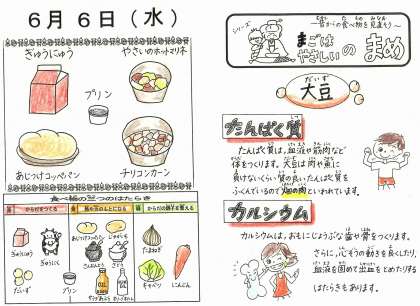 6月6日（水）
ぎゅうにゅう
やさいのホットマリネ
プリン
あじつけコッペパン
チリコンカーン
食べ物の三つのはたらき
赤 からだをつくる
黄 熱や力のもとになる
緑 からだの調子を整える
ぎゅうにく
ぎゅうにゅう
だいず
プリン
じゃがいも
こんにゃく
さとう
油
たまねぎ
キャベツ
にんじん
シリーズ
～昔からの食べ物を見直そう～
まごは
やさしいの
まめ
だいず
大豆
たんぱく質
たんぱく質は、血液や筋肉など
体をつくります。大豆は肉や魚に
負けないくらい質の良いたんぱく質を
ふくんでいるので畑の肉といわれています。
カルシウム
カルシウムは、おもにじょうぶな歯や骨をつくります。
さらに、心ぞうの動きを良くしたり、
血液を固めて出血をとめたりする
はたらきもあります。